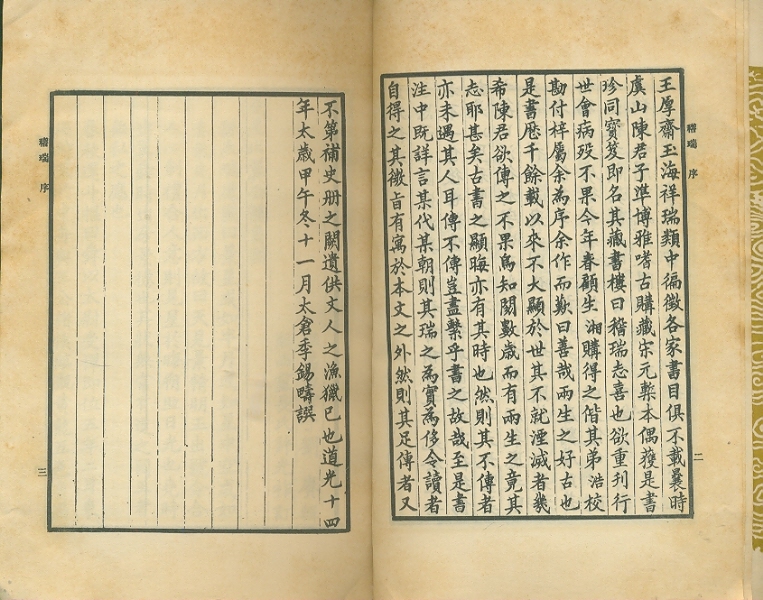 稽瑞 序
二
王厚齋玉海祥瑞類中徧徵各家書目俱不載曩時
虞山陳君子準博雅嗜古購藏宋元槧本偶獲是書
珍同寶笈即名其藏書樓曰稽瑞志喜也欲重刊行
世會病歿不果今年春顧生湘購得之偕其弟浩校
勘付梓屬余為序余作而歎曰善哉兩生之好古也
是書歷千餘載以來不大顯於世其不就湮滅者幾
希陳君欲傳之不果烏知閱數歲而有兩生之竟其
志耶甚矣古書之顯晦亦有其時也然則其不傳者
亦未遇其人耳傳不傳豈盡繫乎書之故哉至是書
注中既詳言某代某朝則其瑞之為實為侈令讀者
自得之其徵旨有寓於本文之外然則其足傳者又
不第補史册之闕遺供文人之漁獵已也道光十四
年太歲甲午冬十一月太倉季錫疇譔
稽瑞 序
三